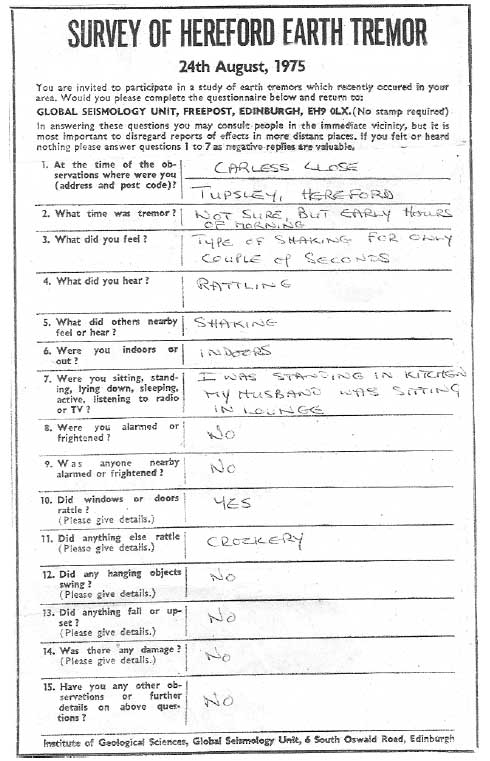 SURVEY OF HEREFORD EARTH TREMOR
24th August, 1975
You are invited to participate in a study of earth tremors which recently occured in your
area. Would you please complete the questionnaire below and return to:
GLOBAL SEISMOLOGY UNIT, FREEPOST, EDINBURGH, EH9 0LX. (No stamp required)
In answering these questions you may consult people in the immediate vicinity, but it is
most important to disregard reports of effects in more distant places. If you felt or heard
nothing please answer questions 1 to 7 as negative replies are valuable.
1. At the time of the ob-
servations where were you
(address and post code)?
CARLESS CLOSE
TUPSLEY, HEREFORD
2. What time was tremor?
NOT SURE, BUT EARLY HOURS
OF MORNING
3. What did you feel?
TYPE OF SHAKING FOR ONLY
COUPLE OF SECONDS
4. What did you hear?
RATTLING
5. What did others nearby
feel or hear?
SHAKING
6. Were you indoors or
out?
INDOORS
7. Were you sitting, stand-
ing, lying down, sleeping,
active, listening to radio
or TV?
I WAS STANDING IN KITCHEN
MY HUSBAND WAS SITTING
IN LOUNGE
8. Were you alarmed or
frightened?
NO
9. Was anyone nearby
alarmed or frightened?
NO
10. Did windows or doors
rattle?
(Please give details.)
YES
11. Did anything else rattle
(Please give details.)
CROCKERY
12. Did any hanging objects
swing?
(Please give details.)
NO
13. Did anything fall or up-
set?
(Please give details.)
NO
14. Was there any damage?
(Please give details.)
NO
15. Have you any other ob-
servations or further
details on above ques-
tions?
NO
Institute of Geological Sciences, Global Seismology Unit, 6 South Oswald Road, Edinburgh